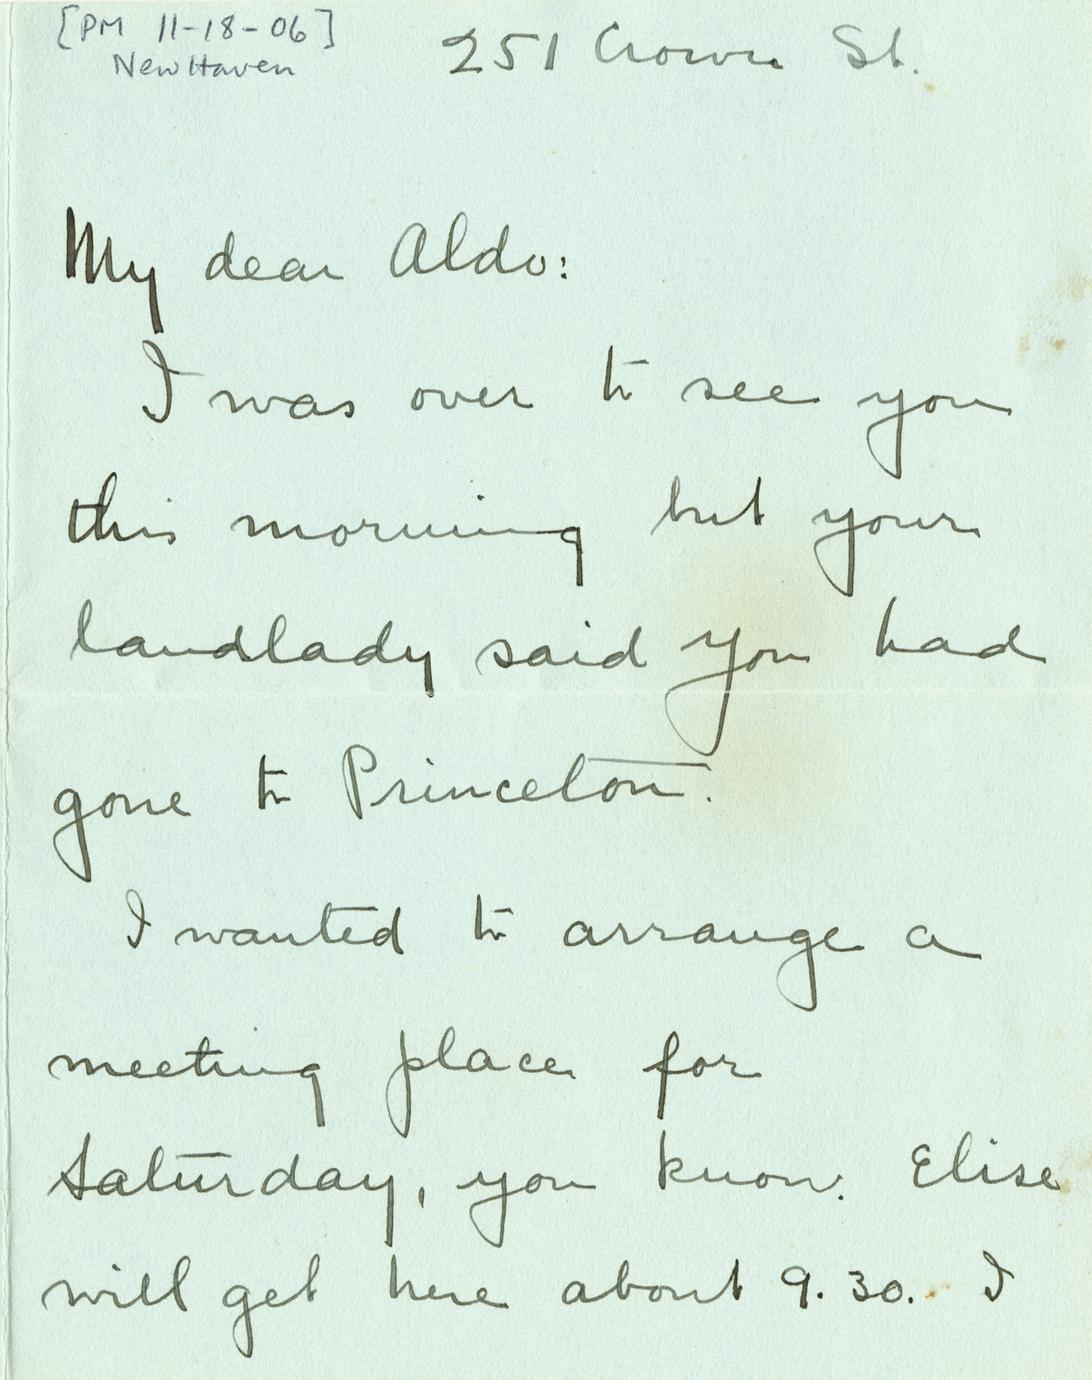 [PM 11-18-06]
New Haven
251 Crown St.
My dear Aldo:
I was over to see you
this morning but your
landlady said you had
gone to Princeton.
I wanted to arrange a
meeting place for
Saturday, you know. Elise
will get here about 9.30. I